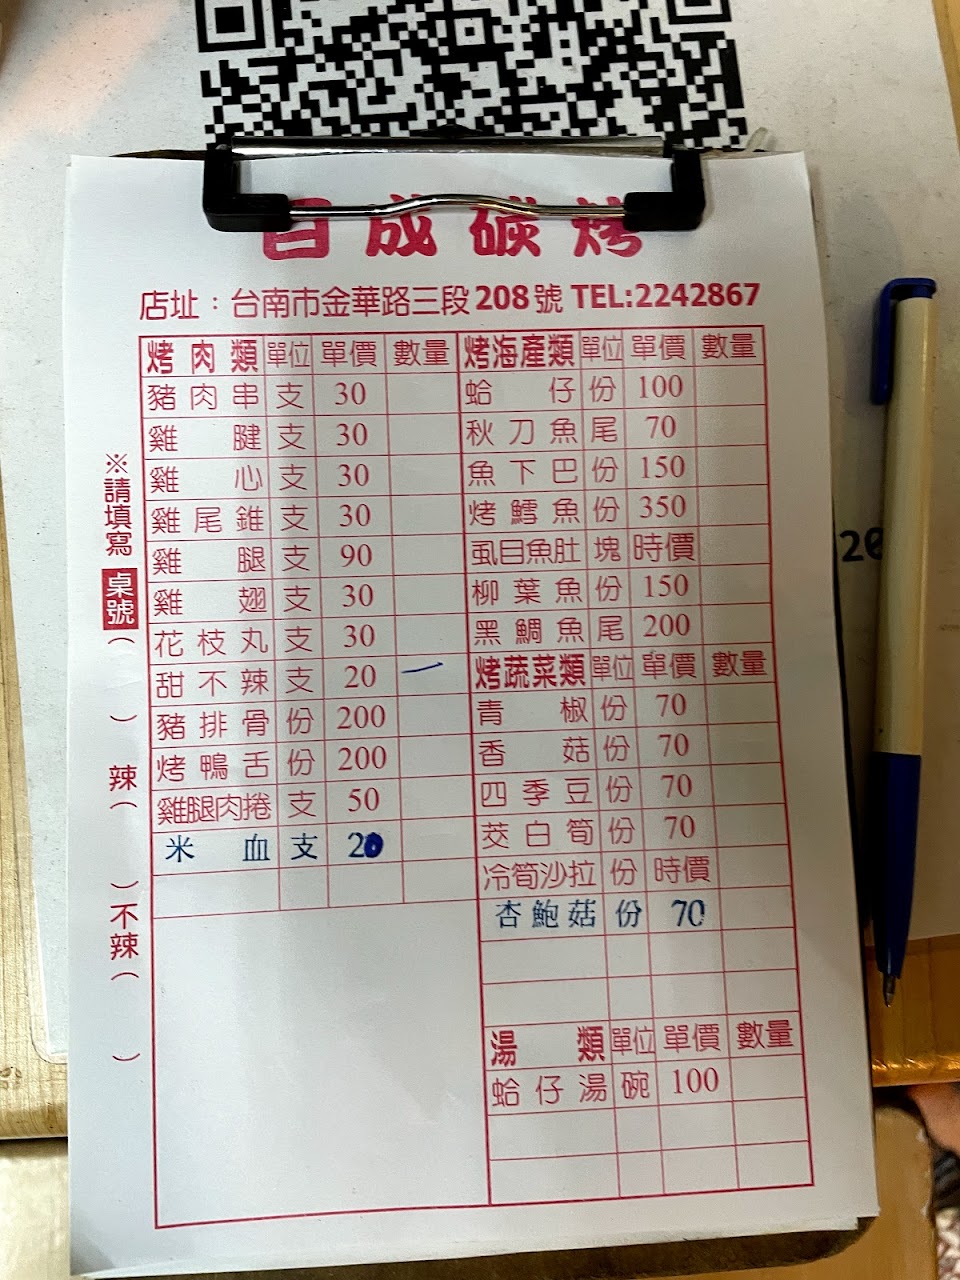 日成碳烤
店址：台南市金華路三段208號 TEL:2242867
烤肉類 單位 單價 數量
豬肉串 支 30
雞腱 支 30
雞心 支 30
雞尾錐 支 30
雞腿 支 90
雞翅 支 30
花枝丸 支 30
甜不辣 支 20 一
豬排骨 份 200
烤鴨舌 份 200
雞腿肉捲 支 50
米血 支 20
烤海產類 單位 單價 數量
蛤仔 份 100
秋刀魚 尾 70
魚下巴 份 150
烤鱈魚 份 350
虱目魚肚 塊 時價
柳葉魚 份 150
黑鯛魚 尾 200
烤蔬菜類 單位 單價 數量
青椒 份 70
香菇 份 70
四季豆 份 70
茭白筍 份 70
冷筍沙拉 份 時價
杏鮑菇 份 70
湯類 單位 單價 數量
蛤仔湯 碗 100
※請填寫桌號（ ）辣（ ）不辣（ ）
20